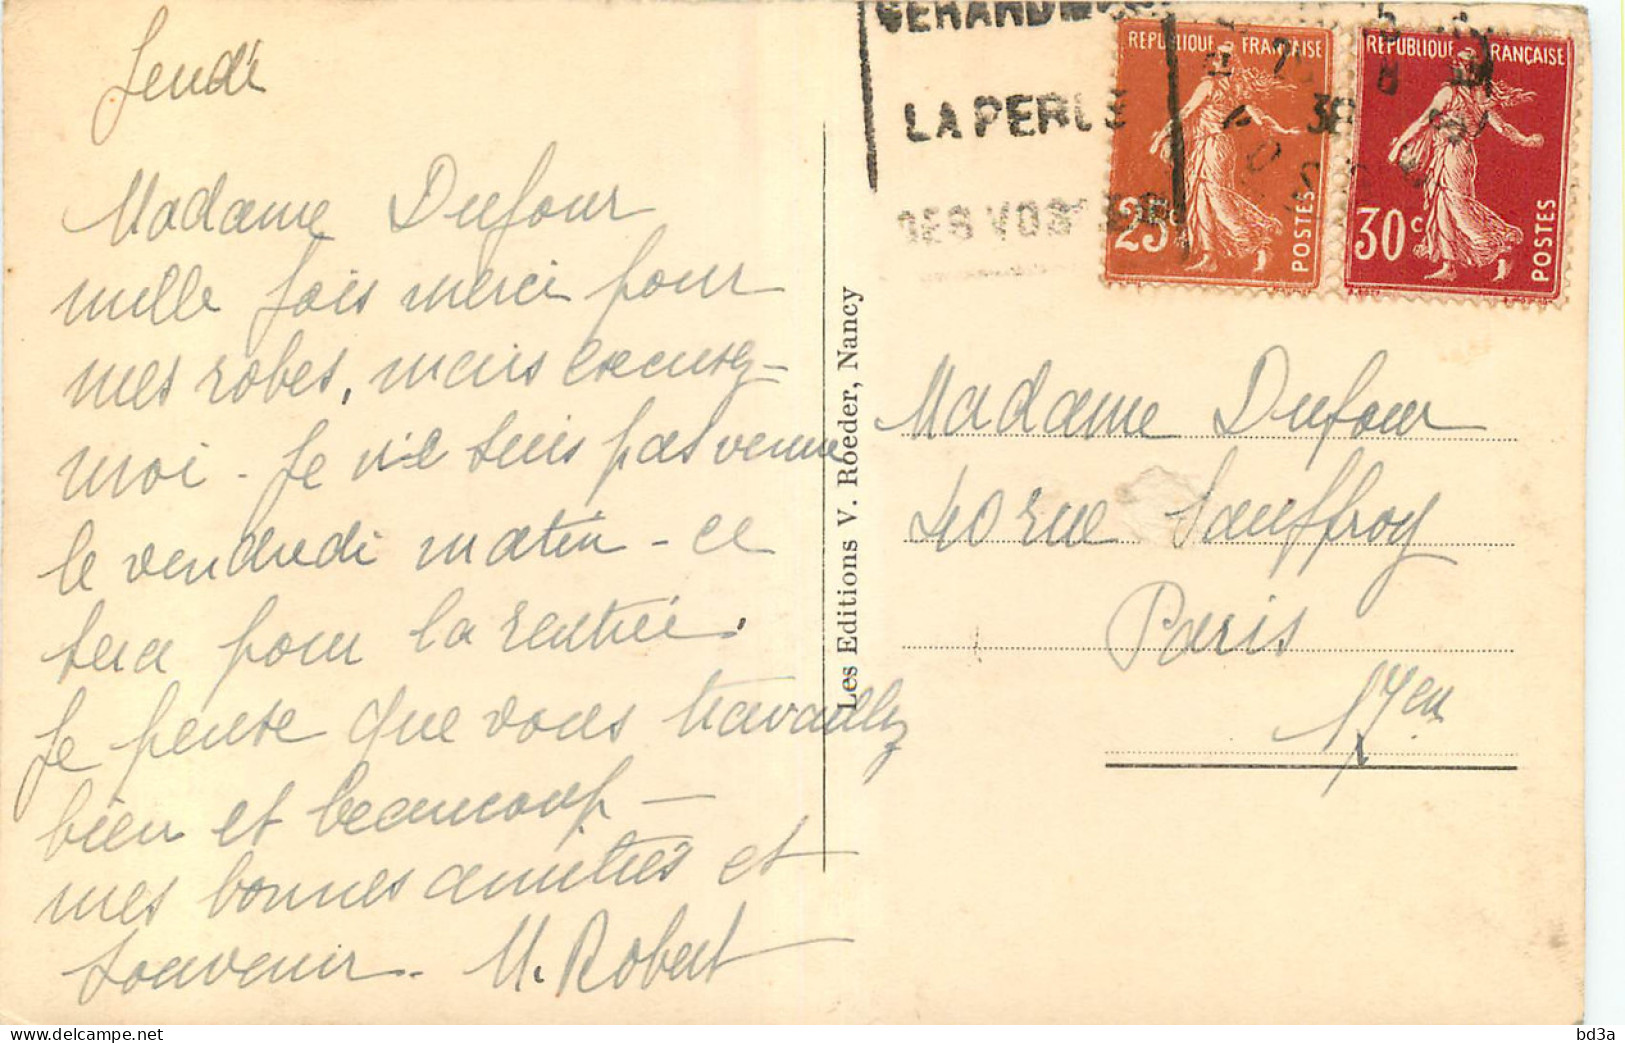 Jeudi
Madame Dufour
mille fois merci pour
mes robes, mais excusez-
moi - Je ne suis pas venue
le vendredi matin - ce
sera pour la rentrée.
Je pense que vous travaillez
bien et beaucoup -
mes bonnes amitiés et
souvenir. M. Robert
Les Editions V. Roeder, Nancy
GERARDMER
LA PERLE
DES VOSGES
REPUBLIQUE FRANÇAISE
25c
POSTES
REPUBLIQUE FRANÇAISE
30c
POSTES
38
Madame Dufour
40 rue Sauffroy
Paris
17en
www.delcampe.net
bd3a